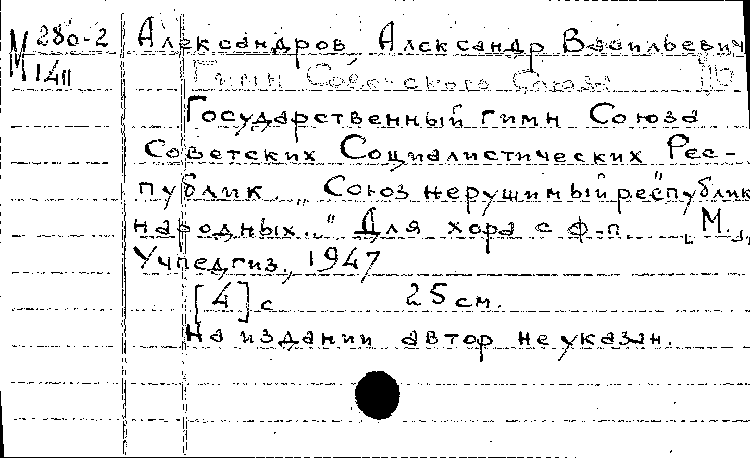 М 280-2
1411
Александров, Александр Васильевич
Гимн Советского Союза
Государственный гимн Союза
Советских Социалистических Рес-
публик. „Союз нерушимый республик
народных..." Для хора с ф.-п. М.,
Учпедгиз, 1947
[4] с 25 см.
На издании автор не указан.